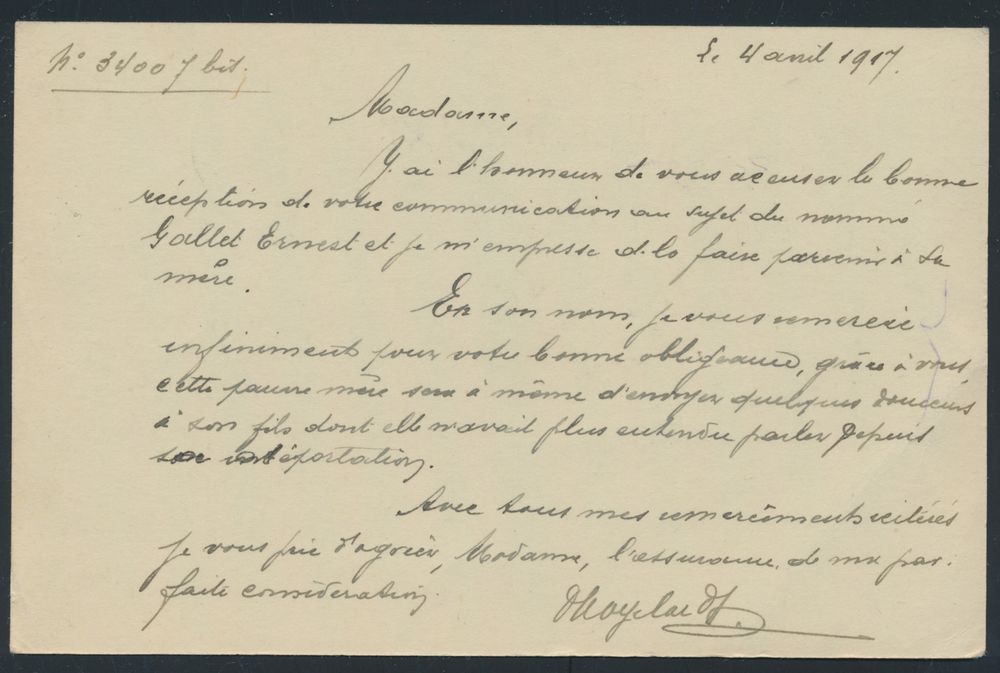 N° 34007 bis.
Le 4 avril 1917.
Madame,
J'ai l'honneur de vous accuser la bonne
réception de votre communication au sujet du nommé
Gallet Ernest et je m'empresse de la faire parvenir à sa
mère.
En son nom, je vous remercie
infiniment pour votre bonne obligeance, grâce à vous
cette pauvre mère sera à même d'envoyer quelques douceurs
à son fils dont elle n'avait plus entendu parler depuis
sa déportation.
Avec tous mes remerciments réitérés
je vous prie d'agréer, Madame, l'assurance de ma par-
faite considération.